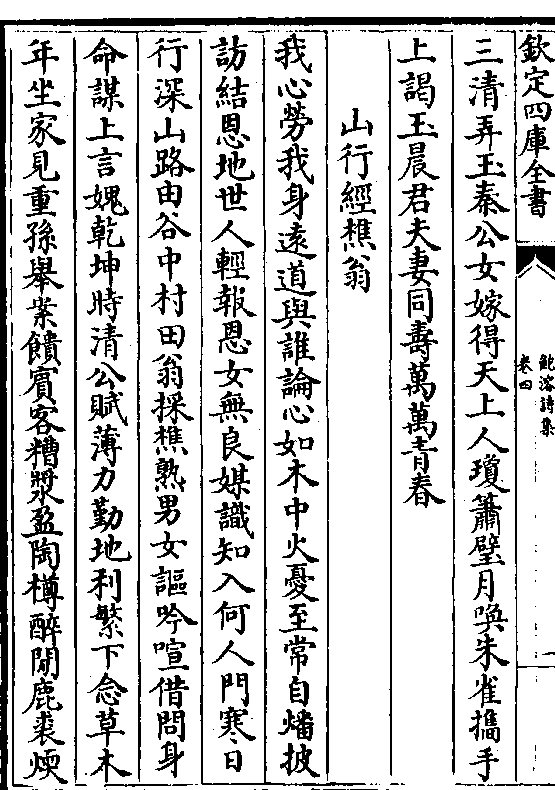 欽定四庫全書
鮑溶詩集
卷四
一
三清弄玉秦公女嫁得天上人瓊簫璧月喚朱雀攜手
上謁玉晨君夫妻同壽萬萬青春
山行經樵翁
我心勞我身遠道與誰論心如木中火憂至常自燔披
訪結恩地世人輕報恩女無良媒識知入何人門寒日
行深山路由谷中村田翁採樵熟男女謳吟喧借問身
命謀上言媿乾坤時清公賦薄力勤地利繁下念草木
年坐家見重孫舉案饋賓客糟漿盈陶樽醉閒鹿裘煗